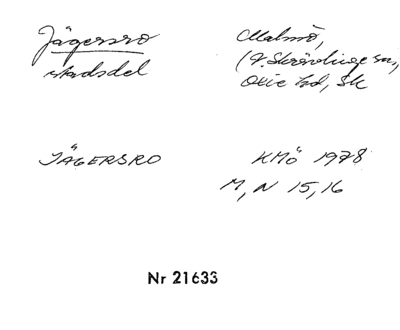 Jägersro Malmö,
stadsdel (V. Skrävlinge sn,
Oxie hd, Sk
JÄGERSRO KMÖ 1978
M, N 15, 16
Nr 21633